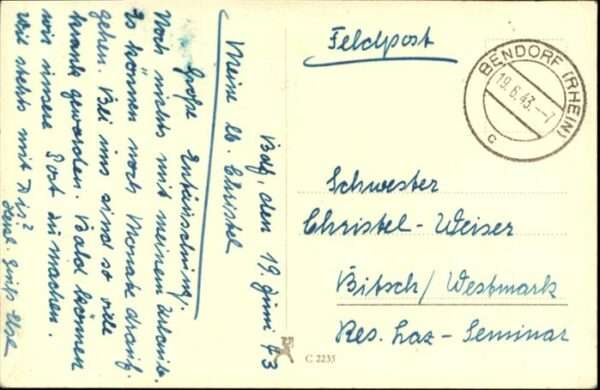 Bdf, den 19. Juni 43
Meine lb. Christel
Große Entäuschung.
Noch nichts mit meinem Urlaub.
Es können noch Monate draufgehen.
Bei uns sind so viele
krank geworden. Bald können
wir unsere Post zu machen.
Wie stehts mit Dir?
Herzl. Grüß Ilse
Feldpost
BENDORF (RHEIN)
19.6.43.--7
c
Schwester
Christel-Weiser
Bitsch/Westmark
Res. Laz-Seminar
C 2235